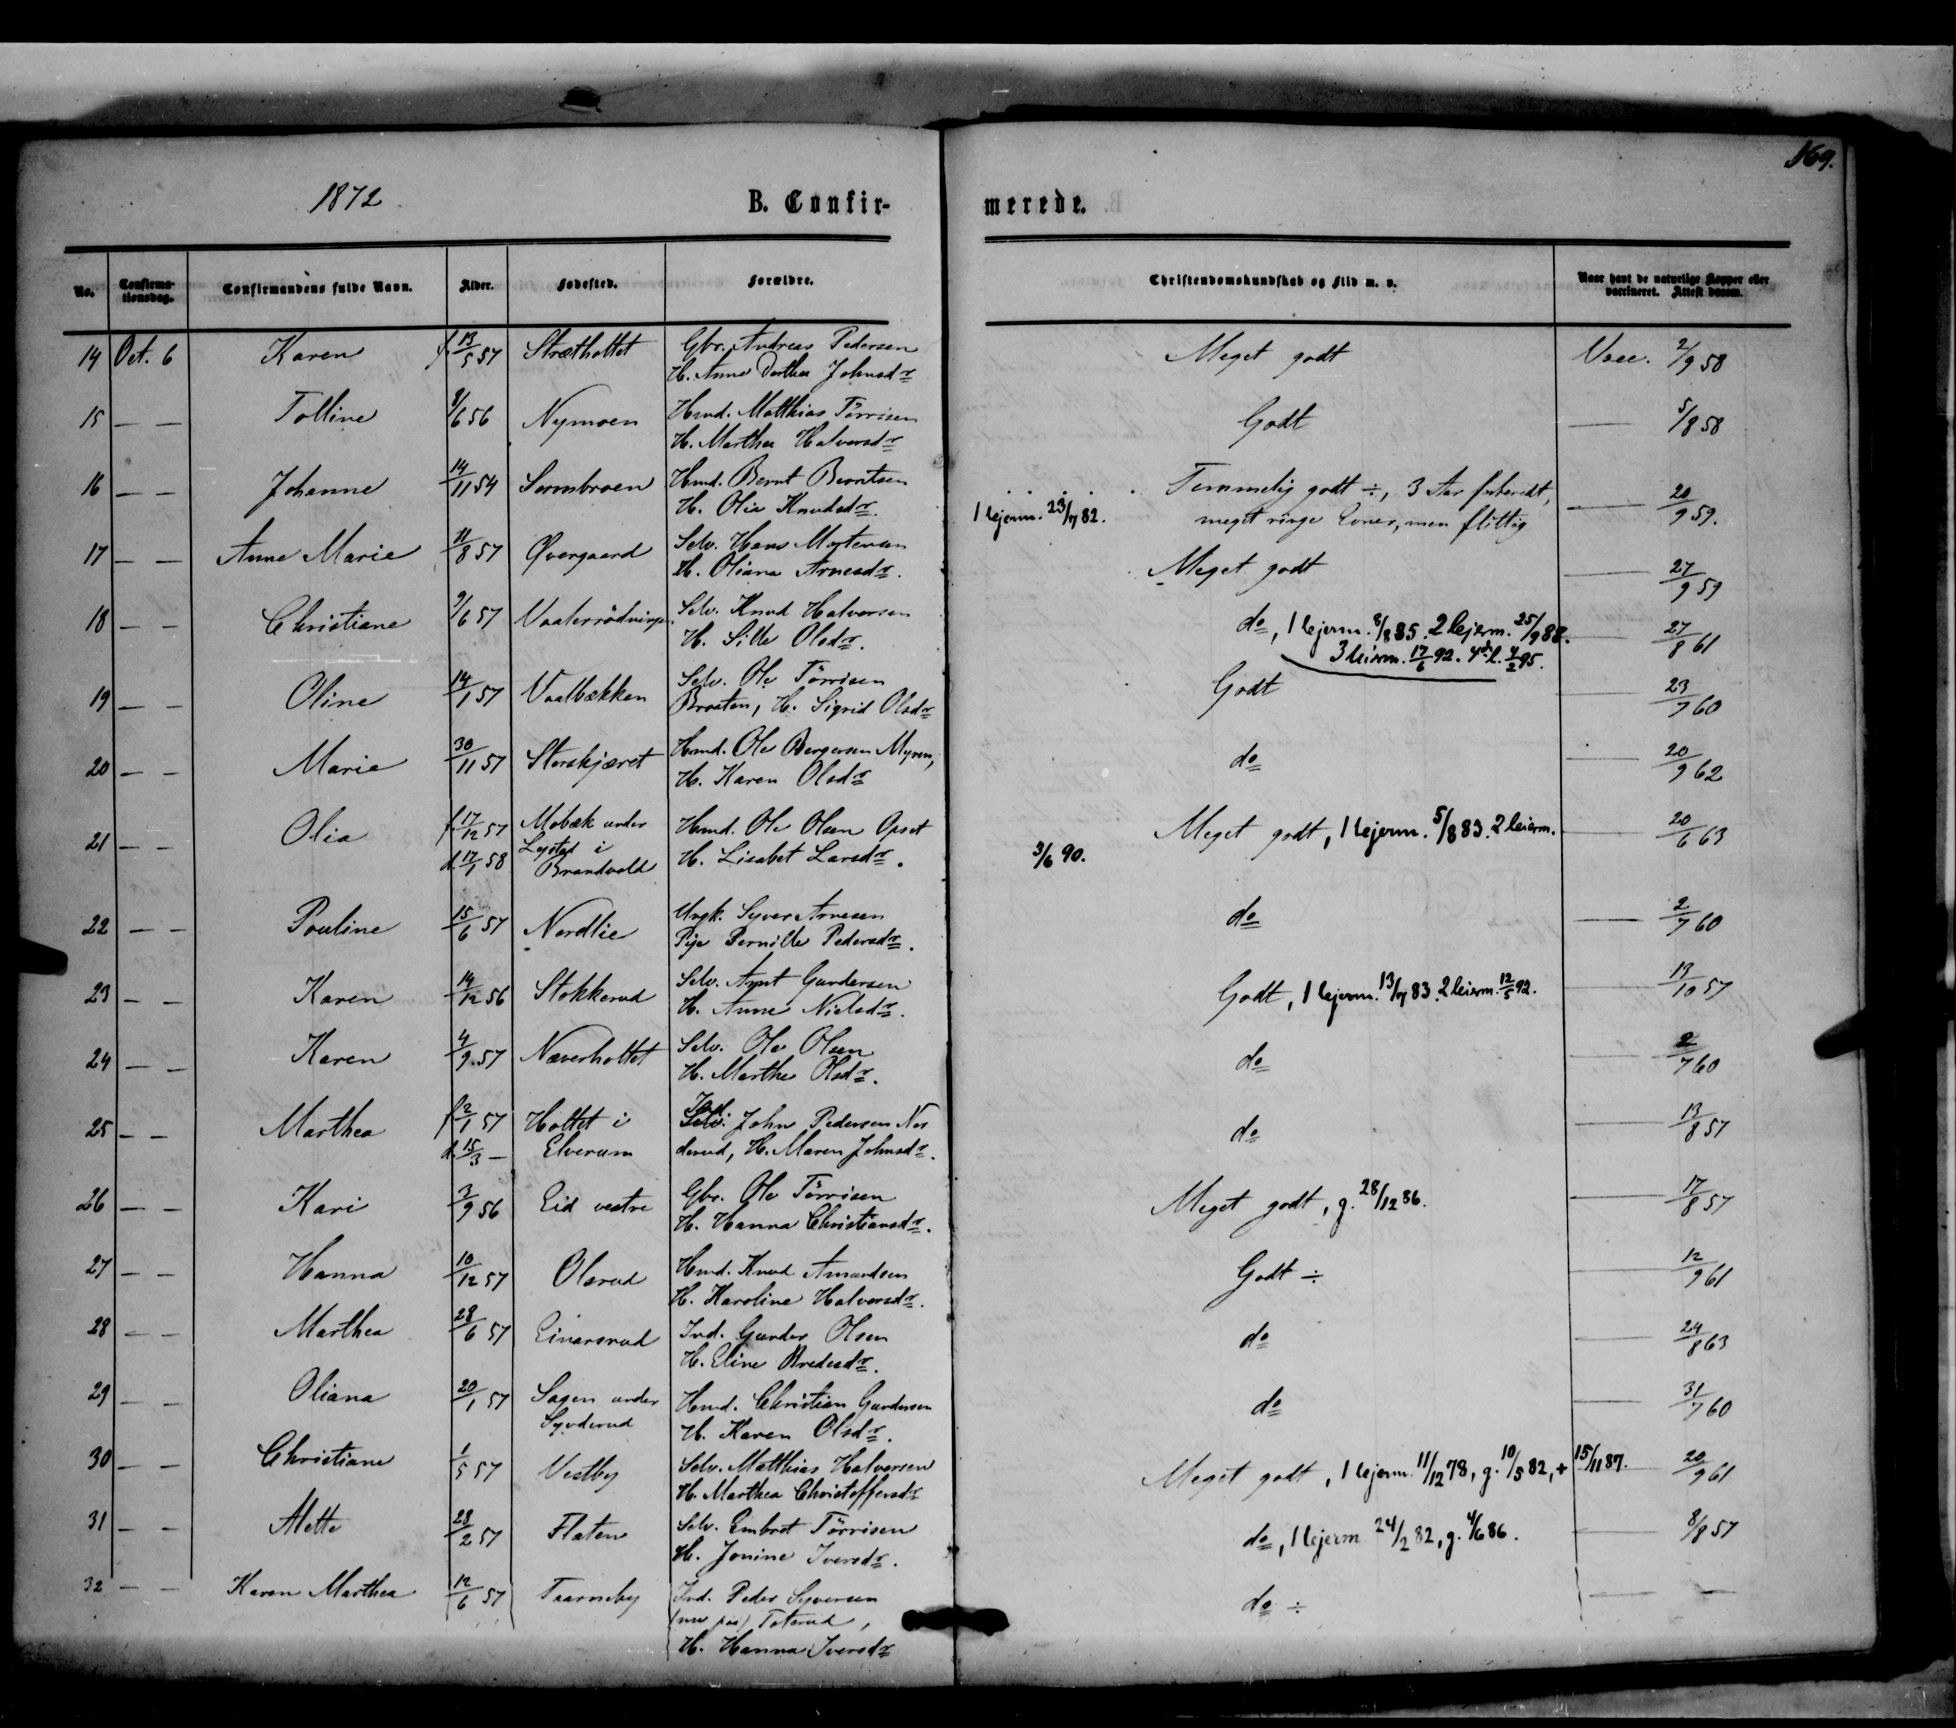 169.
1872
B. Confirmerede.
No. Confirmationsdag. Confirmandens fulde Navn. Alder. Fødested. Forældre. Christendomskundskab og Flid m. v. Naar havt de naturlige Kopper eller vaccineret. Attest derom.
14 Oct. 6 Karen f. 13/5 57 Strætholtet Gbr. Andreas Pedersen Meget godt Vacc. 2/9 58
H. Anne Dorthea Johnsdr
15 — — Tolline 8/6 56 Nymoen Hmd. Matthias Törrisen Godt — 5/8 58
H. Marthea Halvorsdr
16 — — Johanne 14/11 54 Sormbroen Hmd. Bernt Berntsen Temmelig godt ÷, 3 Aar forberedt, — 20/9 59.
H. Olia Knudsdr. 1 lejerm. 23/7 82. meget ringe Evner, men flittig
17 — — Anne Marie 11/8 57 Øvergaard Selv. Hans Mortensen Meget godt — 27/9 59
H. Oliana Arnesdr.
18 — — Christiane 9/6 57 Vaalerrödningen Selv. Knud Halvorsen do, 1 lejerm. 8/8 85. 2 lejerm. 25/9 88. — 27/8 61
H. Sille Olsdr. 3 leierm. 17/6 92. 4de l. 4/2 95.
19 — — Oline 14/1 57 Vaalbækken Selv. Ole Törrisen Godt — 23/7 60
Braaten, H. Sigrid Olsdr
20 — — Marie 30/11 57 Storskjæret Hmd. Ole Bergersen Myren, do — 20/9 62
H. Karen Olsdr
21 — — Olia f. 17/12 57 Mobæk under Hmd. Ole Olsen Opset Meget godt, 1 lejerm. 5/8 83. 2 leierm. — 20/6 63
d. 17/1 58 Lystad i Brandvold H. Lisabet Larsdr. 3/6 90.
22 — — Pouline 15/6 57 Nordlie Ungk. Syver Arnesen do — 2/7 60
Pige Pernille Pedersdr.
23 — — Karen 14/12 56 Stokkerud Selv. Arnt Gundersen Godt, 1 lejerm. 13/7 83. 2 leierm. 12/5 92. — 13/10 57
H. Anne Nielsdr.
24 — — Karen 4/9 57 Næverholtet Selv. Ole Olsen do — 2/7 60
H. Marthe Olsdr.
25 — — Marthea f. 2/1 57 Holtet i Ind. John Pedersen Nor do — 13/8 57
d. 15/3 — Elverum derud, H. Maren Johnsdr.
26 — — Kari 3/9 56 Eid vestre Gbr. Ole Törrisen Meget godt, g. 28/12 86. — 17/8 57
H. Hanna Christiansdr.
27 — — Hanna 10/12 57 Olerud Hmd. Knud Amundsen Godt ÷ — 12/9 61
H. Karoline Halvorsdr.
28 — — Marthea 28/6 57 Einarsrud Ind. Gunder Olsen do — 24/8 63
H. Eline Bredesdr.
29 — — Oliana 20/1 57 Sagen under Hmd. Christian Gundersen do — 31/7 60
Synderud H. Karen Olsdr.
30 — — Christiane 1/5 57 Vestby Selv. Matthias Halvorsen Meget godt, 1 lejerm. 11/12 78, g. 10/5 82, + 15/11 87. — 20/9 61
H. Marthea Christoffersdr
31 — — Mette 28/2 57 Flaten Selv. Embret Törrisen do, 1 lejerm 24/2 82, g. 4/6 86. — 8/8 57
H. Jonine Iversdr.
32 — — Karen Marthea 12/6 57 Taarneby Ind. Peder Syversen do ÷ — —
(nu paa) Toterud,
H. Hanna Iversdr